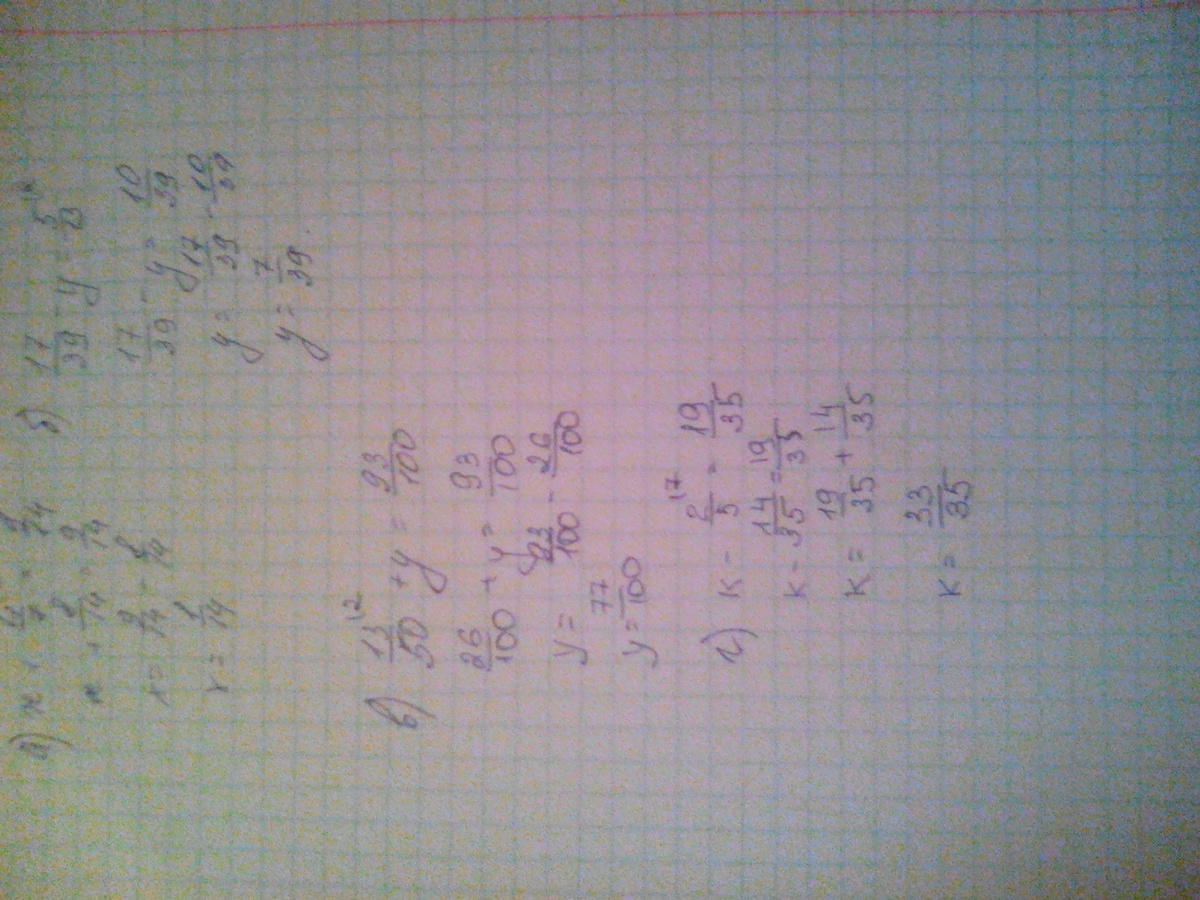 а) x + 4/7 = 9/14
x + 8/14 = 9/14
x = 9/14 - 8/14
x = 1/14
б) 17/39 - y =
17/39 - y = 10/39
y = 17/39 - 10/39
y = 7/39.
в) 13/50 |2 + y = 93/100
26/100 + y = 93/100
y = 93/100 - 26/100
y = 77/100
г) К - 2/5 |7 = 19/35
К - 14/35 = 19/35
К = 19/35 + 14/35
К = 33/35